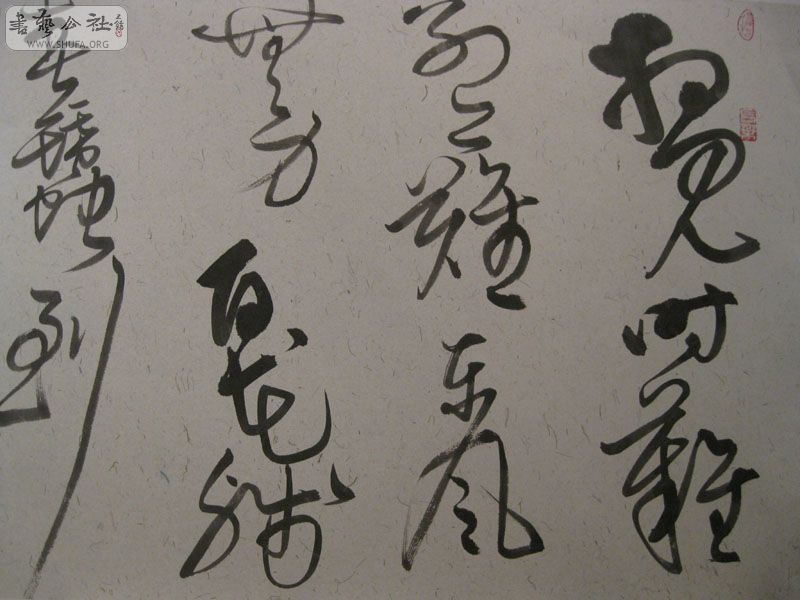 相見时難
别亦難東風
無力百花殘
春蠶到
書藝公社
WWW.SHUFA.ORG